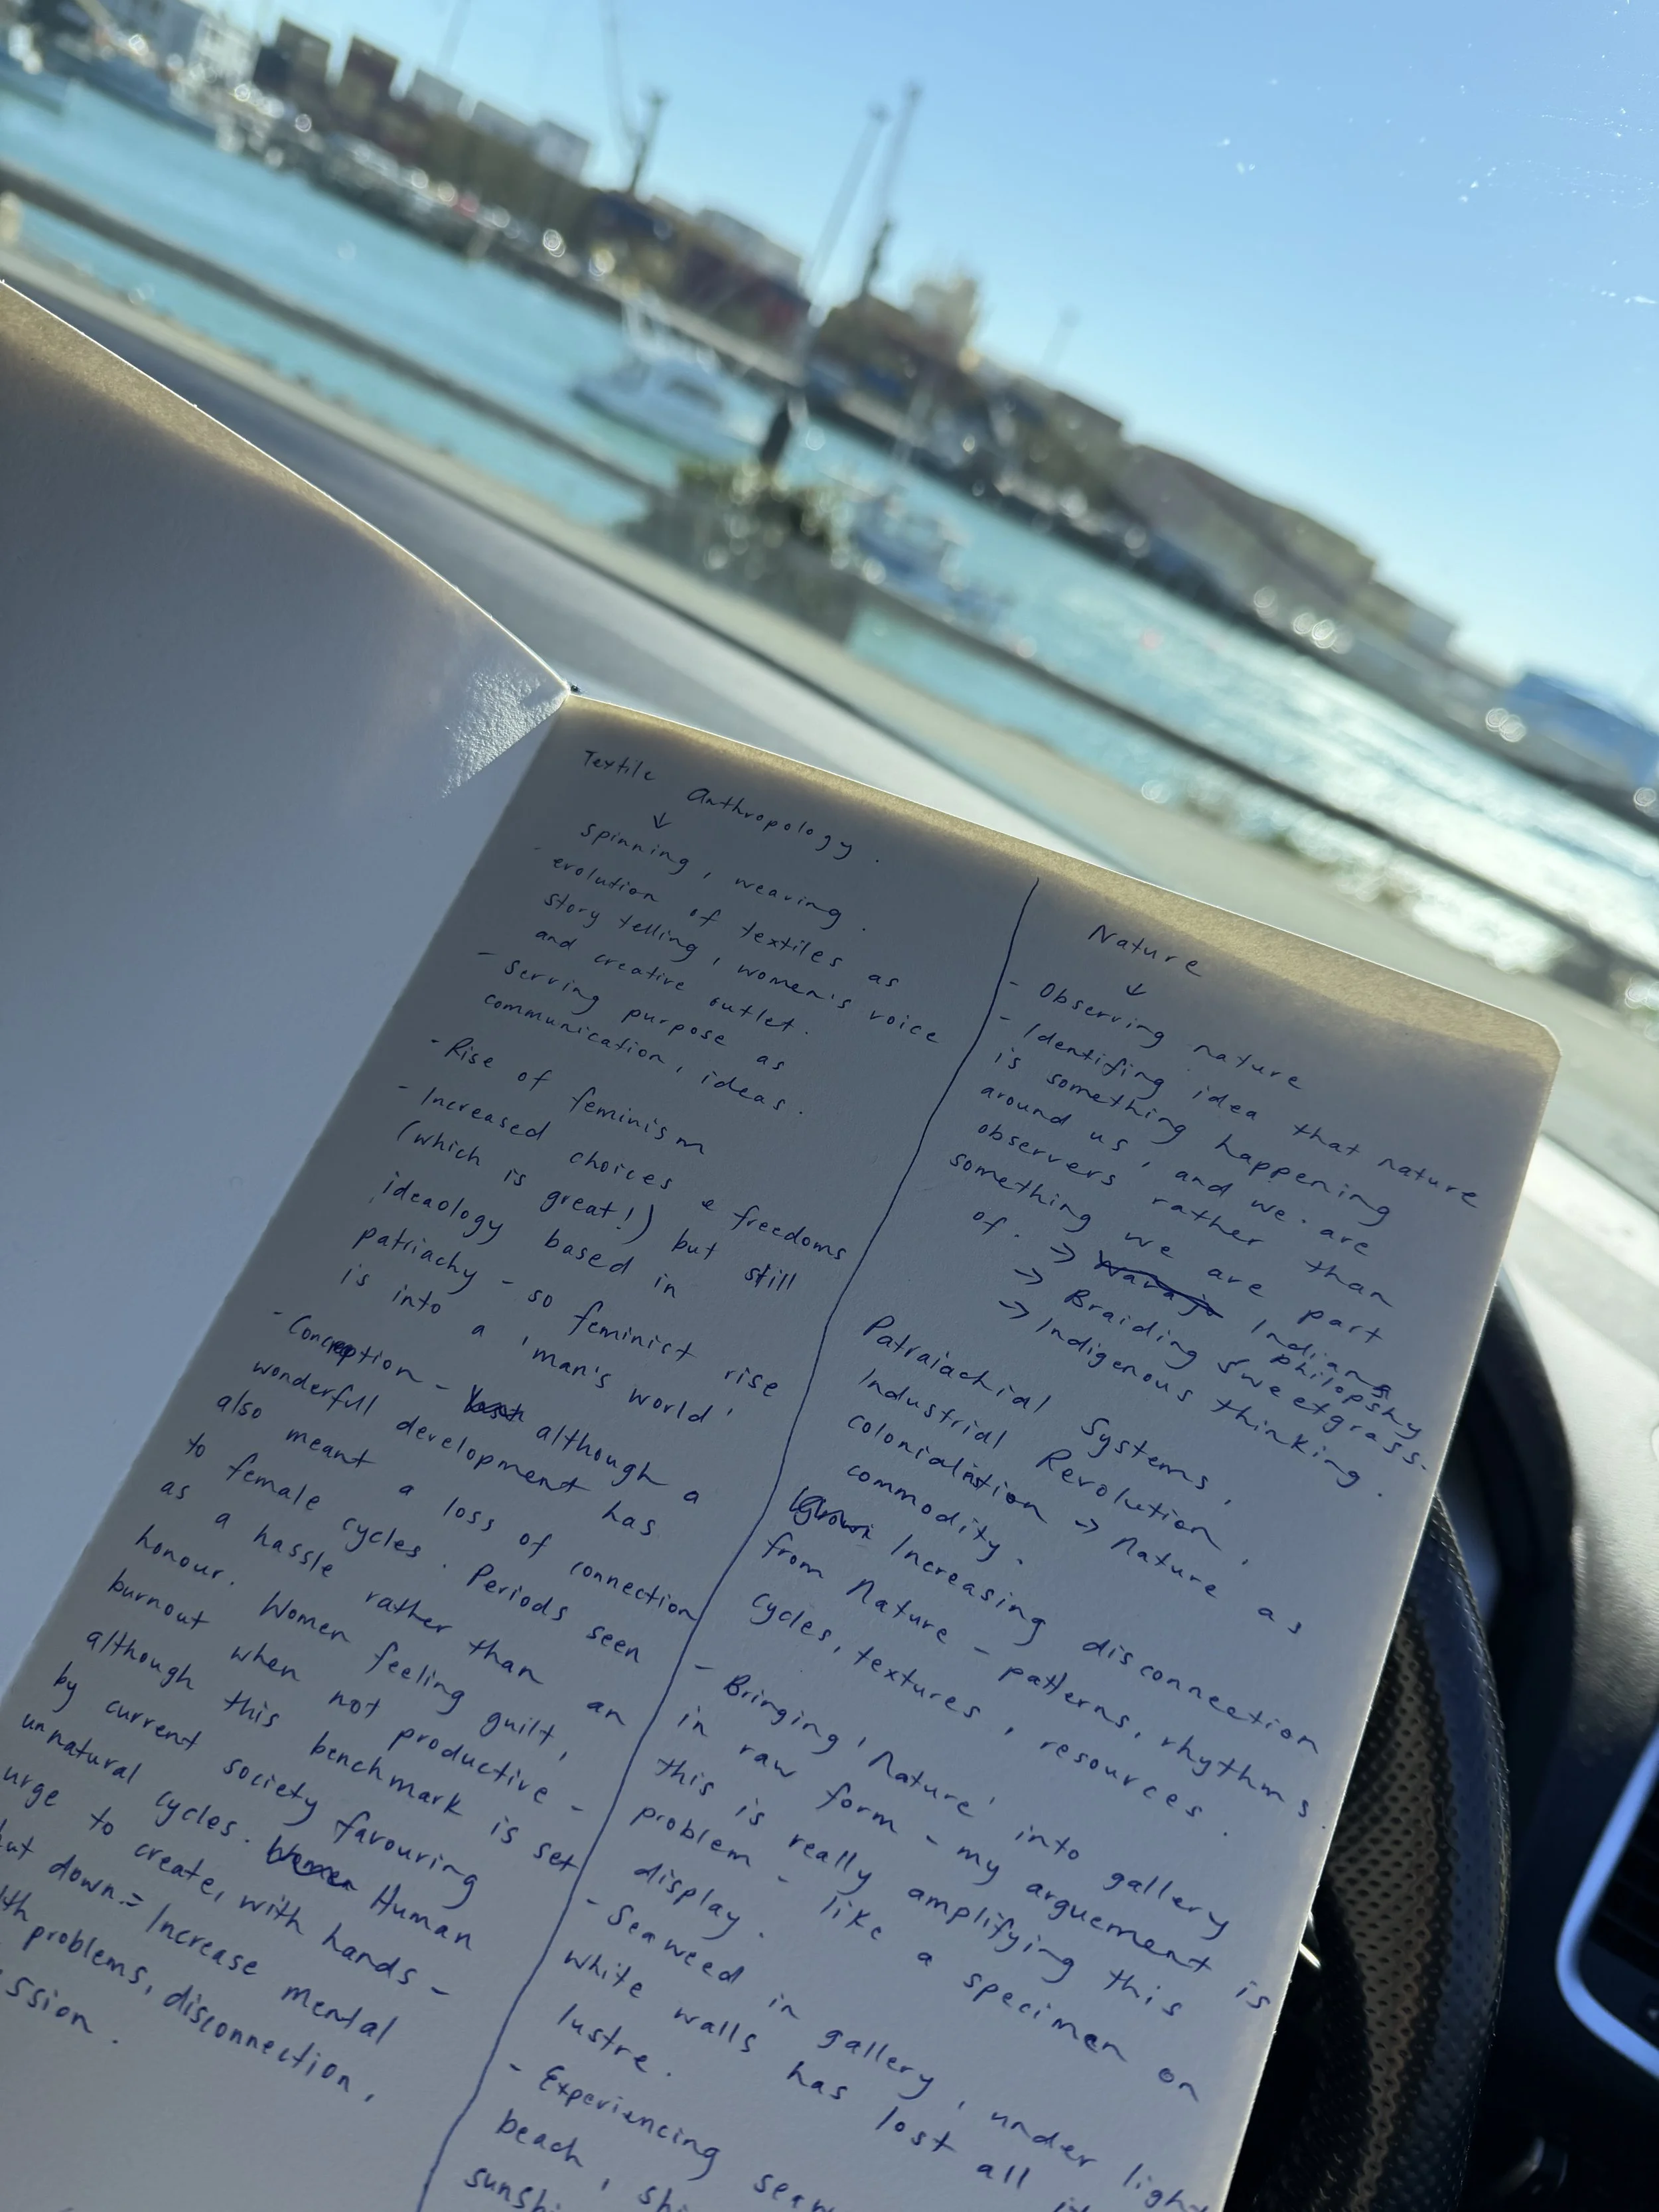 Textile Anthropology.
↓
spinning, weaving.
- evolution of textiles as
story telling, women's voice
and creative outlet.
- Serving purpose as
communication, ideas.
- Rise of feminism
- Increased choices & freedoms
(which is great!) but still
ideaology based in
patriachy - so feminist rise
is into a 'man's world'
- Conception - although a
wonderfull development has
also meant a loss of connection
to female cycles. Periods seen
as a hassle rather than an
honour. Women feeling guilt,
burnout when not productive -
although this benchmark is set
by current society favouring
unnatural cycles. Women Human
urge to create, with hands -
down = Increase mental
problems, disconnection,
Nature
↓
- Observing nature
- Identifing idea that nature
is something happening
around us, and we are
observers rather than
something we are part
of. → Navajo Indians
philopshy
→ Braiding Sweetgrass.
→ Indigenous thinking.
Patraiachial Systems,
Industrial Revolution,
colonialistion → Nature as
commodity.
Increasing disconnection
from Nature - patterns, rhythms
cycles, textures, resources.
- Bringing 'Nature' into gallery
in raw form - my arguement is
this is really amplifying this
problem - like a specimen on
display.
- Seaweed in gallery, under light
white walls has lost all
lustre.
- Experiencing
beach,